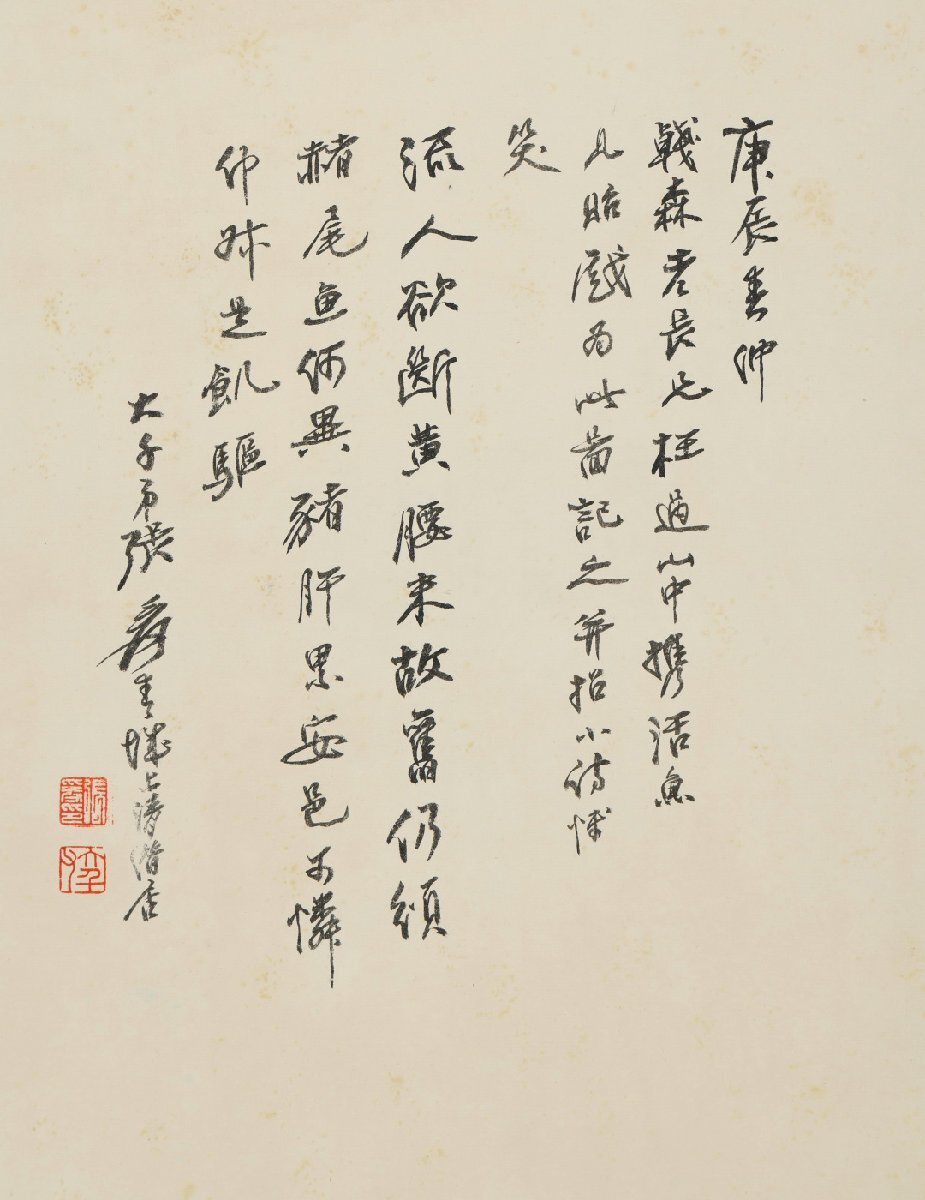 庚辰春仲
戟森老長兄枉過山中携活魚
見貽戲為此啚記之并拈小詩博
笑
流人欲斷黄腰米故舊仍頒
赭尾魚何異豬肝累安邑可憐
仰是飢驅
大千弟張爰青城上清借居